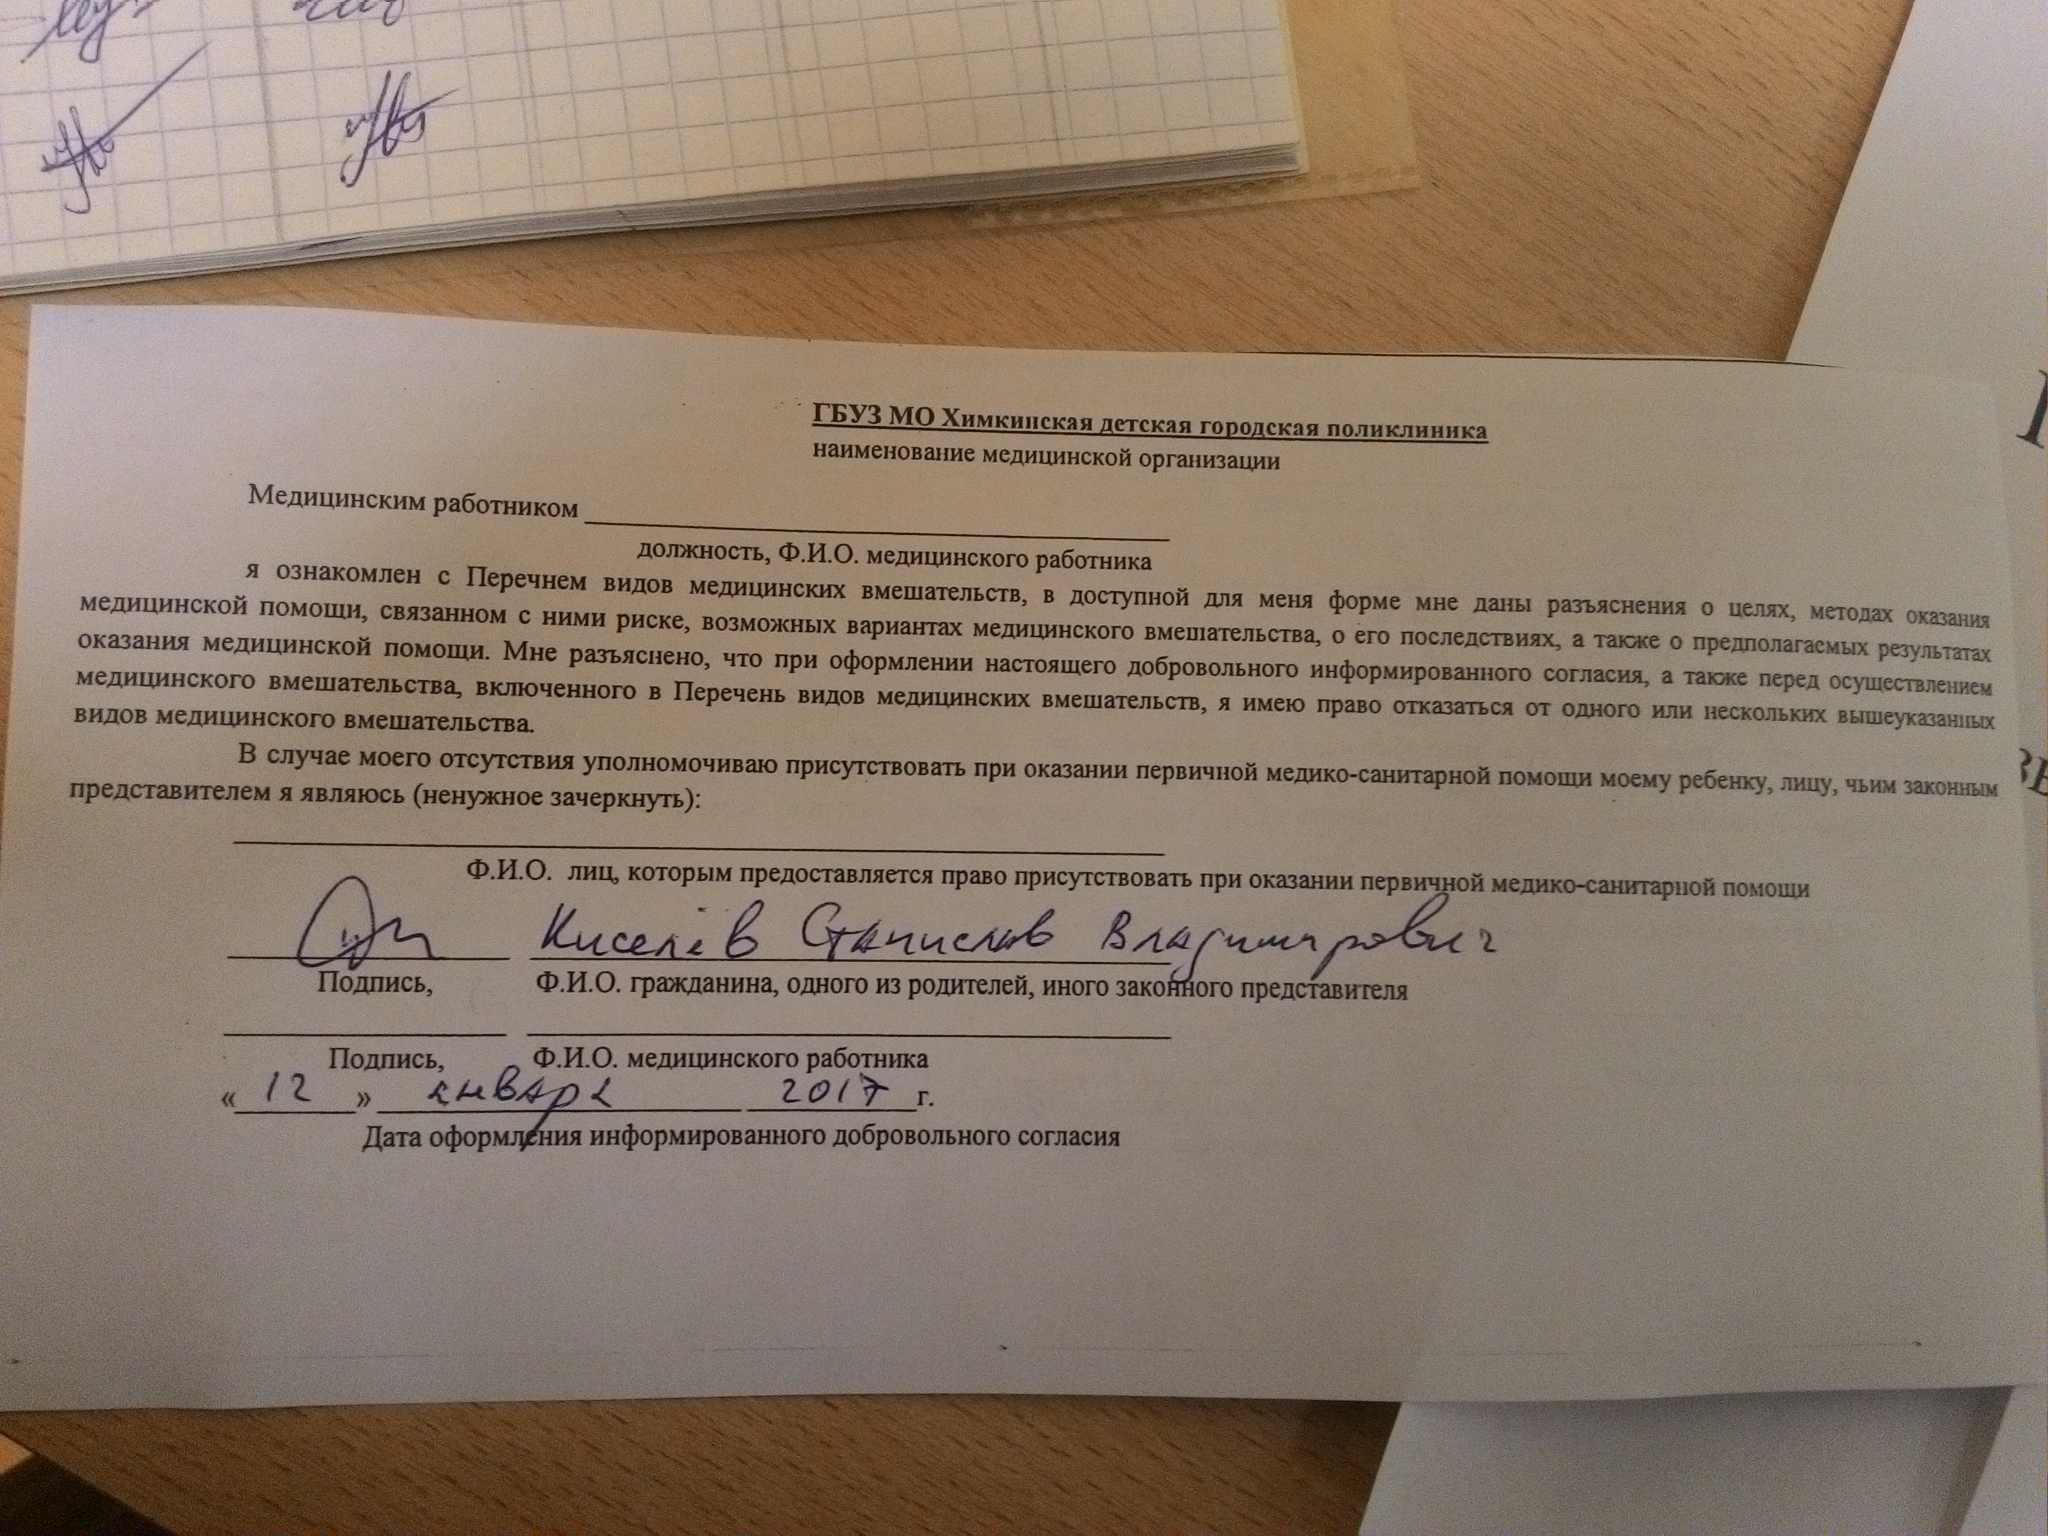 ГБУЗ МО Химкинская детская городская поликлиника
наименование медицинской организации
Медицинским работником
должность, Ф.И.О. медицинского работника
я ознакомлен с Перечнем видов медицинских вмешательств, в доступной для меня форме мне даны разъяснения о целях, методах оказания
медицинской помощи, связанном с ними риске, возможных вариантах медицинского вмешательства, о его последствиях, а также о предполагаемых результатах
оказания медицинской помощи. Мне разъяснено, что при оформлении настоящего добровольного информированного согласия, а также перед осуществлением
медицинского вмешательства, включенного в Перечень видов медицинских вмешательств, я имею право отказаться от одного или нескольких вышеуказанных
видов медицинского вмешательства.
В случае моего отсутствия уполномочиваю присутствовать при оказании первичной медико-санитарной помощи моему ребенку, лицу, чьим законным
представителем я являюсь (ненужное зачеркнуть):
Ф.И.О. лиц, которым предоставляется право присутствовать при оказании первичной медико-санитарной помощи
Киселёв Станислав Владимирович
Подпись, Ф.И.О. гражданина, одного из родителей, иного законного представителя
Подпись, Ф.И.О. медицинского работника
«12» января 2017 г.
Дата оформления информированного добровольного согласия